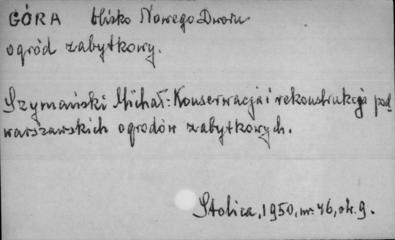 GÓRA blisko Nowego Dworu
ogród zabytkowy.
Szymański Michał: Konserwacja i rekonstrukcja pod
warszawskich ogrodów zabytkowych.
Stolica, 1950, nr. 46, sk. 9.